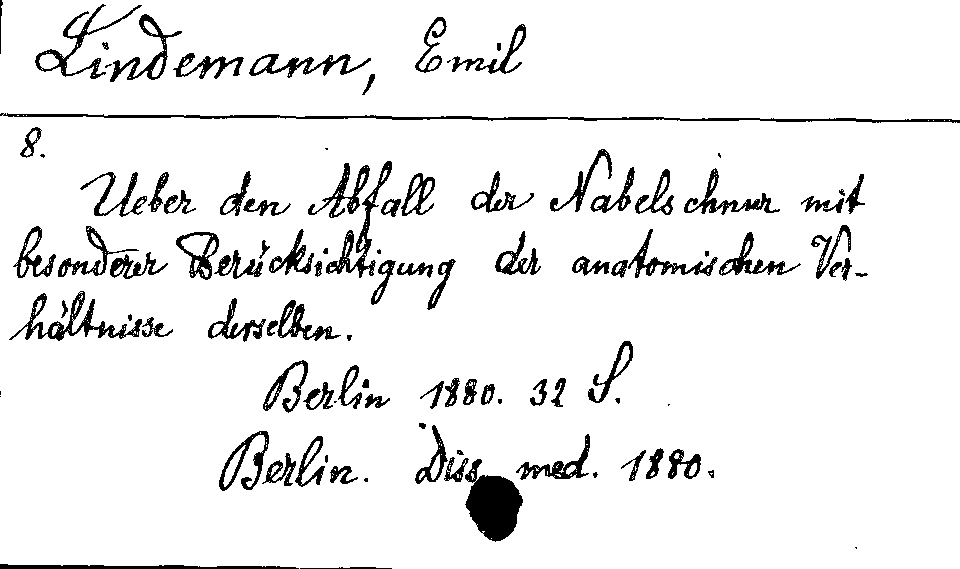 Lindemann, Emil
8.
Ueber den Abfall der Nabelschnur mit
besonderer Berücksichtigung der anatomischen Ver-
hältnisse derselben.
Berlin 1880. 32 S.
Berlin. Diss. med. 1880.